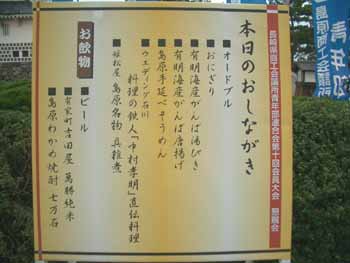 長崎県商工会議所青年部連合会第十回会員大会 懇親会
本日のおしながき
■オードブル
■おにぎり
■有明海産がんば湯びき
■有明海産がんば唐揚げ
■島原手延べそうめん
■ウェディング石川
料理の鉄人「中村孝明」直伝料理
■姫松屋 島原名物 具雑煮
お飲物
■ビール
■有家町吉田屋 萬勝純米
■島原わかめ焼酎 七万石
青年
島原商工会議所